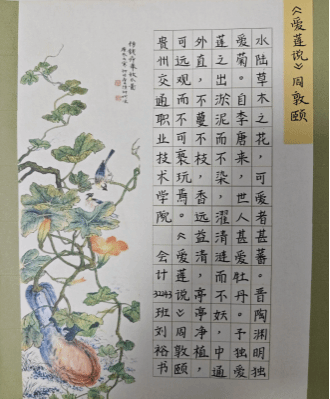 《爱莲说》周敦颐
水陆草木之花，可爱者甚蕃。晋陶渊明独
爱菊。自李唐来，世人甚爱牡丹。予独爱
莲之出淤泥而不染，濯清涟而不妖，中通
外直，不蔓不枝，香远益清，亭亭净植，
可远观而不可亵玩焉。《爱莲说》周敦颐
贵州交通职业技术学院 会计 班刘裕书